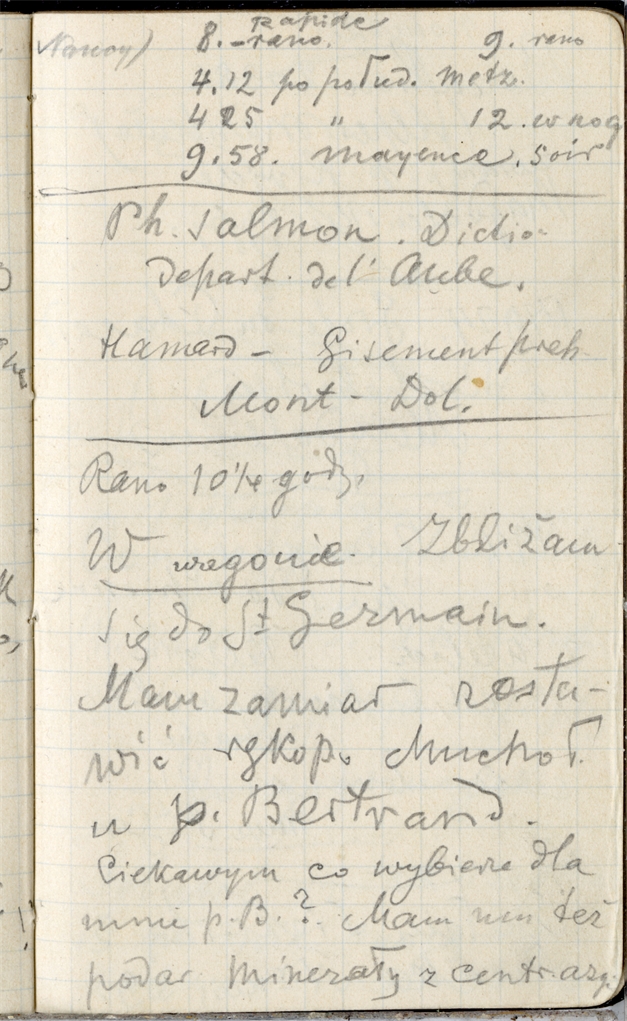 Rapide
8. - rano. 9. rano
4.12 po połud. Metz.
4 25 " 12. w noc
9.58. Mayence. Soir
Ph. Salmon. Dictio-
Depart. de l' Aube.
Hamard - Gisement preh
Mont - Dol.
Rano 10 1/4 godz.
W wagonie. Zbliżam
się do St Germain.
Mam zamiar zosta-
wić rękop.
u p. Bertrand.
Ciekawym co wybierze dla
mnie p. B.? Mam mu też
podar minerały z centr. azy.